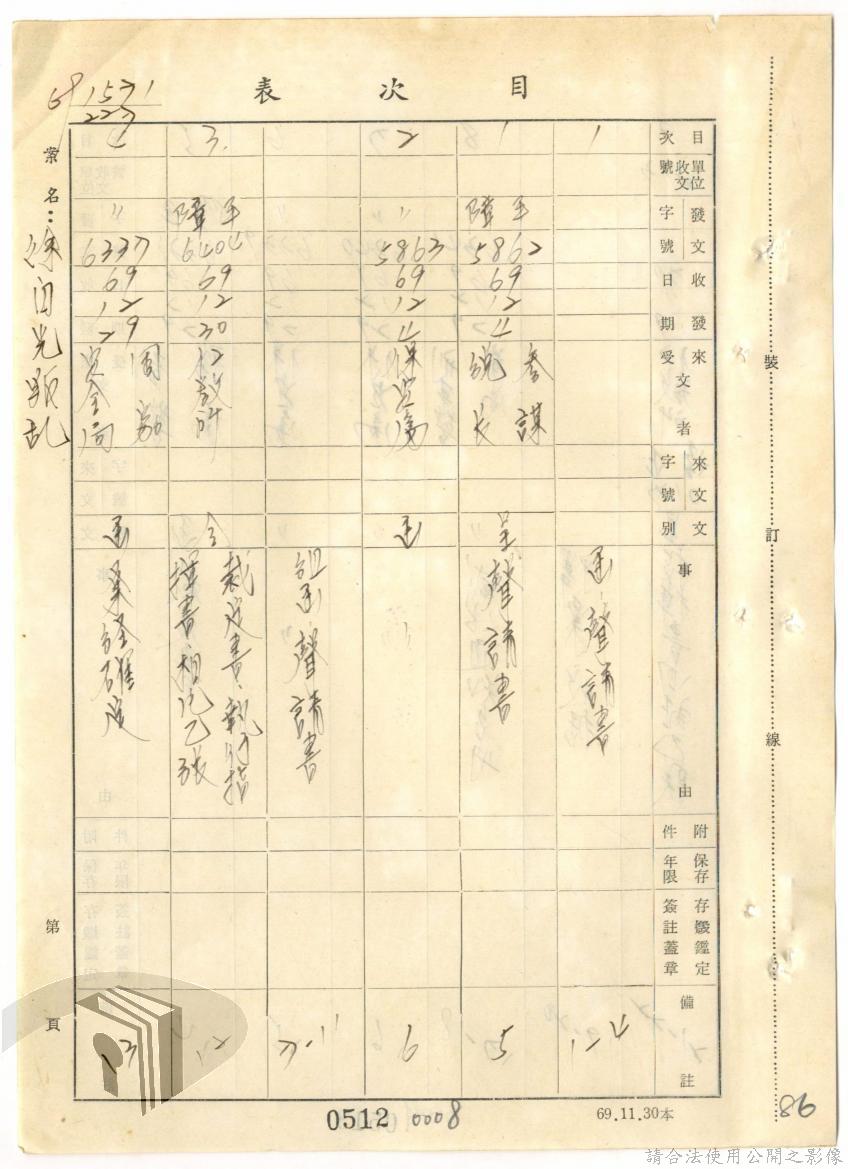 目次表
1571
227
案名：徐自光叛乱
目次
收文單位號
發文字號
收發日期
來文受者
來文字號
文別
事由
附件
保存年限
存檔鑑定簽註蓋章
備註
1
函、聲請書
1-4
1
5862
69
12
4
參謀總長
呈
聲請書
5
2
〃
5863
69
12
4
保安處
函
6
組函、聲請書
7-11
3.
6404
69
12
30
仁教所
令
裁定書、執行指揮書、相片乙張
12
4
〃
6337
69
12
29
國家安全局
函
案經確定
13
裝訂線
第頁
0512
0008
69.11.30本
86
請合法使用公開之影像